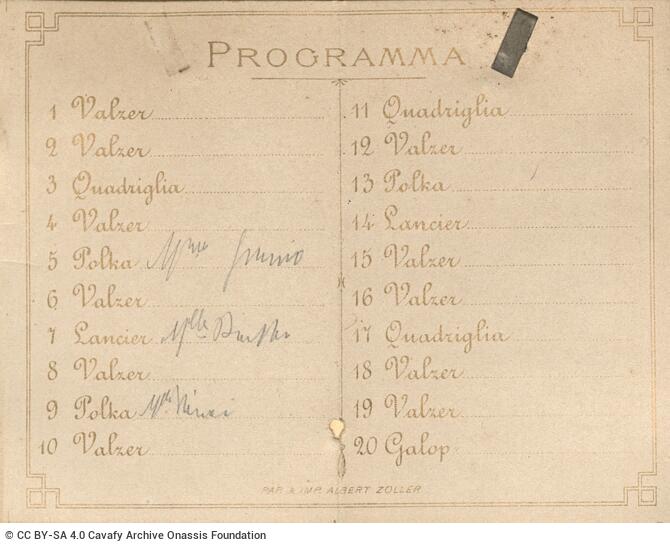 PROGRAMMA
1 Valzer
2 Valzer
3 Quadriglia
4 Valzer
5 Polka Mme
6 Valzer
7 Lancier Mlle
8 Valzer
9 Polka Mlle
10 Valzer
11 Quadriglia
12 Valzer
13 Polka
14 Lancier
15 Valzer
16 Valzer
17 Quadriglia
18 Valzer
19 Valzer
20 Galop
PAP. & IMP. ALBERT ZOLLER
© CC BY-SA 4.0 Cavafy Archive Onassis Foundation